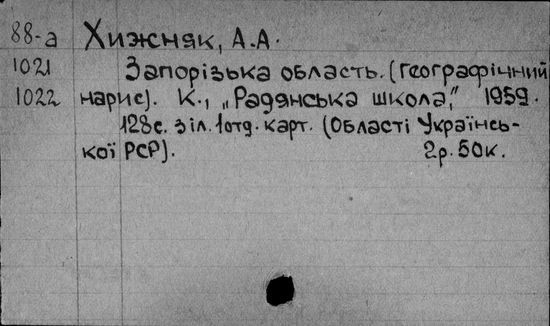 88-а Хижняк, А.А.
1021 Запорізька область. (Географічний
1022 нарис). К., „Радянська школа", 1959.
128с. з іл. 1отд. карт. (Області Українсь-
кої РСР). 2р. 50к.